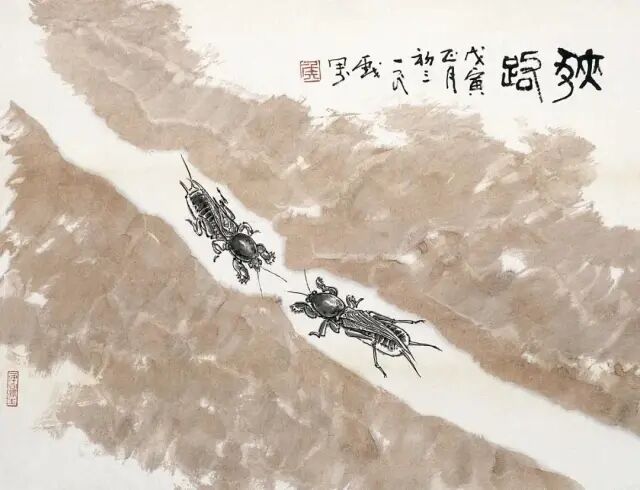 狹路
戊寅
正月
初三
一民